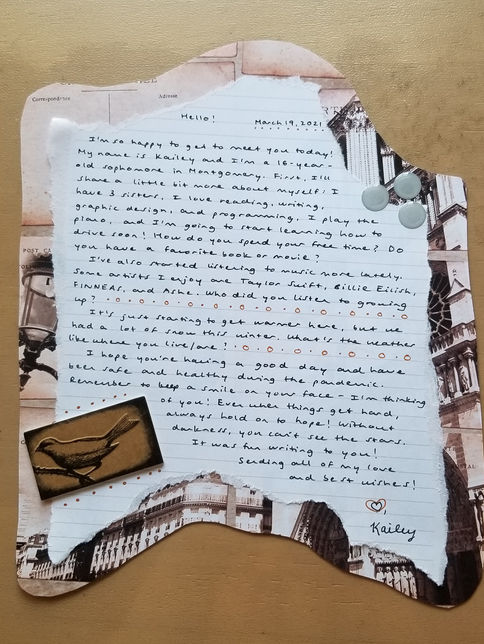 Correspondance
Adresse
Hello!
March 19, 2021
I'm so happy to get to meet you today!
My name is Kailey and I'm a 16-year-
old sophomore in Montgomery. First, I'll
share a little bit more about myself; I
have 3 sisters, I love reading, writing,
graphic design, and programming, I play the
piano, and I'm going to start learning how to
drive soon! How do you spend your free time? Do
you have a favorite book or movie?
I've also started listening to music more lately.
Some artists I enjoy are Taylor Swift, Billie Eilish,
FINNEAS, and Ashe. Who did you listen to growing
up?
It's just starting to get warmer here, but we
had a lot of snow this winter. What's the weather
like where you live/are?
I hope you're having a good day and have
been safe and healthy during the pandemic.
Remember to keep a smile on your face - I'm thinking
of you! Even when things get hard,
always hold on to hope! Without
darkness, you can't see the stars.
It was fun writing to you!
Sending all of my love
and best wishes!
Kailey
POST CA